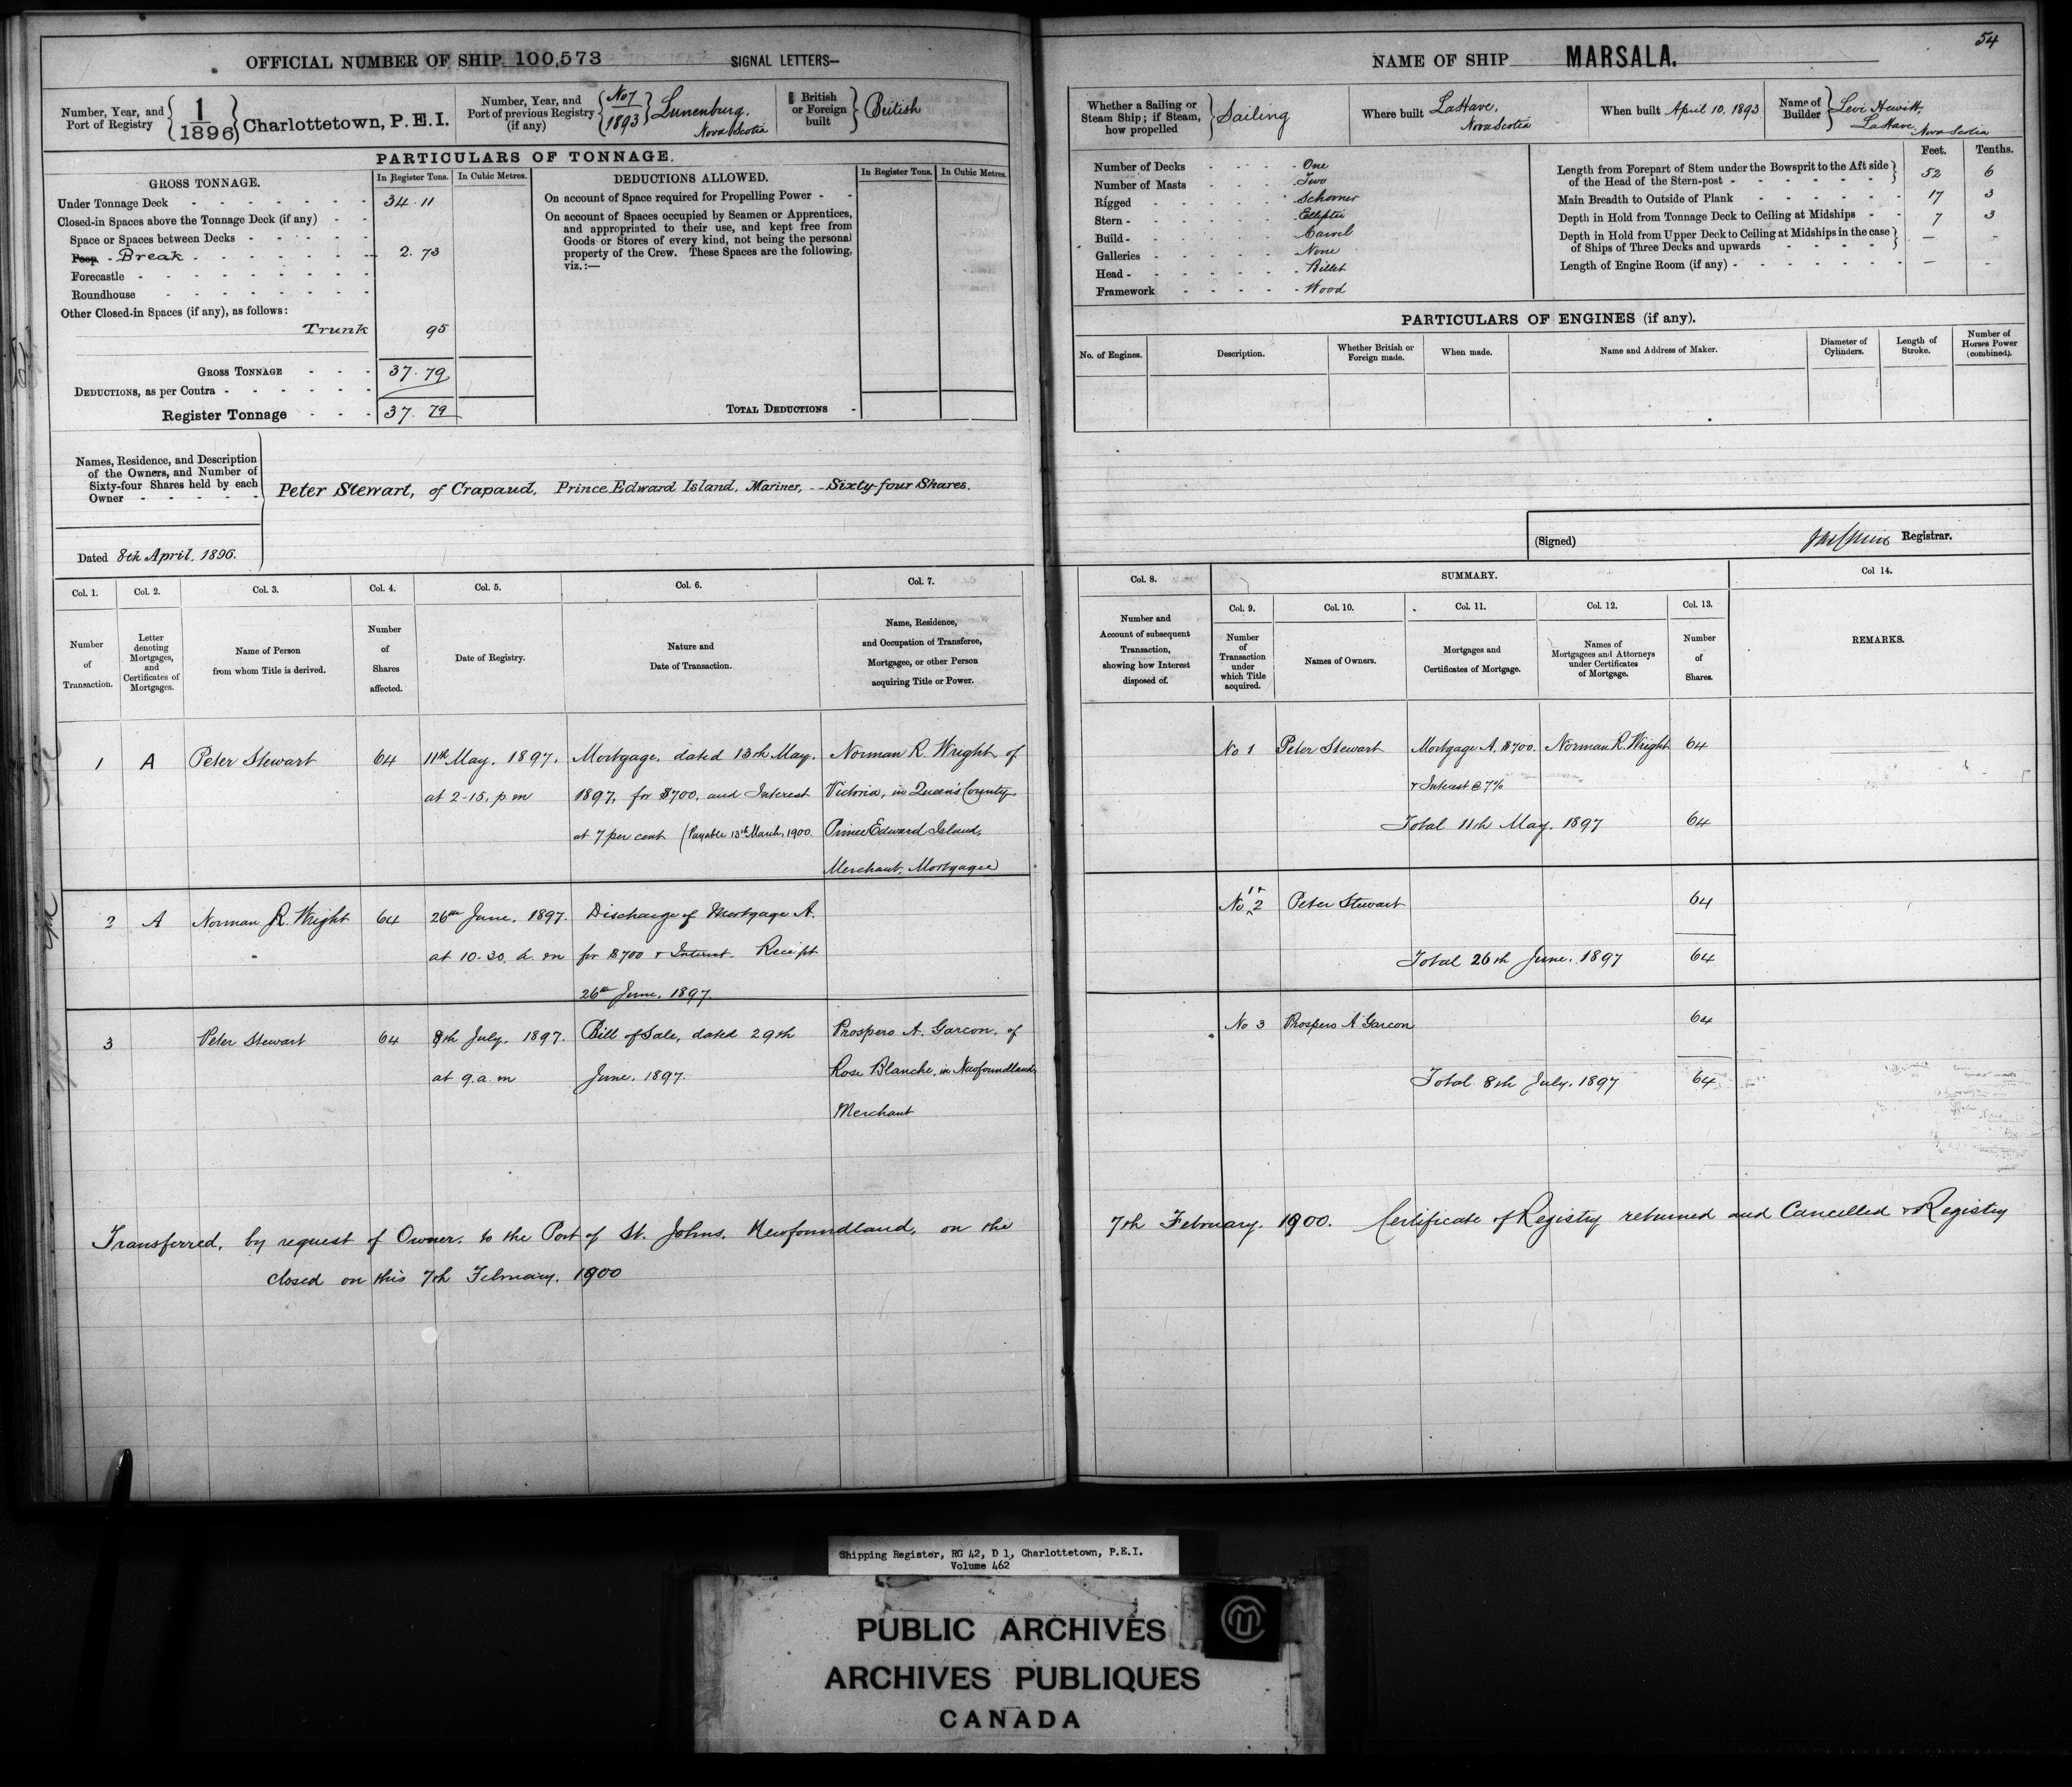 54
OFFICIAL NUMBER OF SHIP 100,573 SIGNAL LETTERS—
Number, Year, and Port of Registry { 1/1896 } Charlottetown, P.E.I.
Number, Year, and Port of previous Registry (if any) { No 7/1893 } Lunenburg, Nova Scotia
British or Foreign built } British
PARTICULARS OF TONNAGE.
GROSS TONNAGE. In Register Tons. In Cubic Metres.
Under Tonnage Deck 34.11
Closed-in Spaces above the Tonnage Deck (if any)
Space or Spaces between Decks
Poop Break 2.73
Forecastle
Roundhouse
Other Closed-in Spaces (if any), as follows:
Trunk 95
GROSS TONNAGE 37.79
DEDUCTIONS, as per Contra
Register Tonnage 37.79
DEDUCTIONS ALLOWED. In Register Tons. In Cubic Metres.
On account of Space required for Propelling Power
On account of Spaces occupied by Seamen or Apprentices,
and appropriated to their use, and kept free from
Goods or Stores of every kind, not being the personal
property of the Crew. These Spaces are the following,
viz.:—
TOTAL DEDUCTIONS
Names, Residence, and Description
of the Owners, and Number of
Sixty-four Shares held by each
Owner
Peter Stewart, of Crapaud, Prince Edward Island, Mariner, -- Sixty-four Shares.
Dated 8th April, 1896.
NAME OF SHIP MARSALA.
Whether a Sailing or Steam Ship; if Steam, how propelled } Sailing
Where built LaHave, Nova Scotia
When built April 10, 1893
Name of Builder } Levi Hewitt, LaHave, Nova Scotia
Number of Decks One
Number of Masts Two
Rigged Schooner
Stern Elliptic
Build Carvel
Galleries None
Head Billet
Framework Wood
Feet. Tenths.
Length from Forepart of Stem under the Bowsprit to the Aft side
of the Head of the Stern-post 52 6
Main Breadth to Outside of Plank 17 3
Depth in Hold from Tonnage Deck to Ceiling at Midships 7 3
Depth in Hold from Upper Deck to Ceiling at Midships in the case
of Ships of Three Decks and upwards — -
Length of Engine Room (if any) — -
PARTICULARS OF ENGINES (if any).
No. of Engines. Description. Whether British or Foreign made. When made. Name and Address of Maker. Diameter of Cylinders. Length of Stroke. Number of Horses Power (combined).
(Signed) Registrar.
Col. 1. Col. 2. Col. 3. Col. 4. Col. 5. Col. 6. Col. 7.
Number of Transaction.
Letter denoting Mortgages, and Certificates of Mortgages.
Name of Person from whom Title is derived.
Number of Shares affected.
Date of Registry.
Nature and Date of Transaction.
Name, Residence, and Occupation of Transferee, Mortgagee, or other Person acquiring Title or Power.
1 A Peter Stewart 64 11th May, 1897. Mortgage, dated 13th May, Norman R. Wright, of
at 2-15, p m 1897, for $700, and Interest Victoria, in Queen's County
at 7 per cent (Payable 13th March, 1900. Prince Edward Island,
Merchant, Mortgagee
2 A Norman R. Wright 64 26th June, 1897. Discharge of Mortgage A.
at 10-30. a. m for $700 & Interest. Receipt
26th June, 1897.
3 Peter Stewart 64 8th July, 1897. Bill of Sale, dated 29th Prospero A. Garcon, of
at 9. a. m June, 1897. Rose Blanche, in Newfoundland,
Merchant
Col. 8. SUMMARY. Col 14.
Col. 9. Col. 10. Col. 11. Col. 12. Col. 13.
Number and Account of subsequent Transaction, showing how Interest disposed of.
Number of Transaction under which Title acquired.
Names of Owners.
Mortgages and Certificates of Mortgage.
Names of Mortgagees and Attorneys under Certificates of Mortgage.
Number of Shares.
REMARKS.
No 1 Peter Stewart Mortgage A. $700. Norman R. Wright 64
& Interest @ 7%
Total 11th May, 1897 64
No 1 & 2 Peter Stewart 64
Total 26th June, 1897 64
No 3 Prospero A Garcon 64
Total 8th July, 1897 64
Transferred, by request of Owner, to the Port of St. Johns, Newfoundland, on the 7th February, 1900. Certificate of Registry returned and Cancelled & Registry
closed on this 7th February, 1900
Shipping Register, RG 42, D 1, Charlottetown, P.E.I.
Volume 462
PUBLIC ARCHIVES
ARCHIVES PUBLIQUES
CANADA